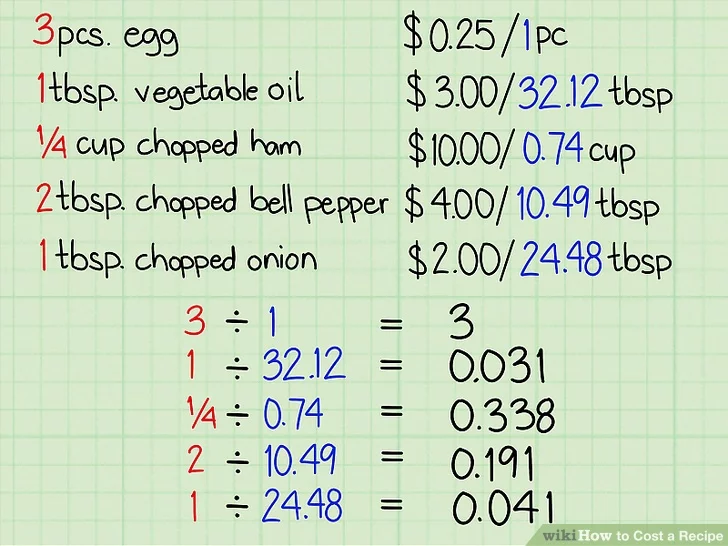 3pcs. egg $0.25/1pc
1tbsp. vegetable oil $3.00/32.12 tbsp
¼ cup chopped ham $10.00/0.74 cup
2tbsp. chopped bell pepper $4.00/10.49 tbsp
1tbsp. chopped onion $2.00/24.48 tbsp
3 ÷ 1 = 3
1 ÷ 32.12 = 0.031
¼ ÷ 0.74 = 0.338
2 ÷ 10.49 = 0.191
1 ÷ 24.48 = 0.041
wikiHow to Cost a Recipe